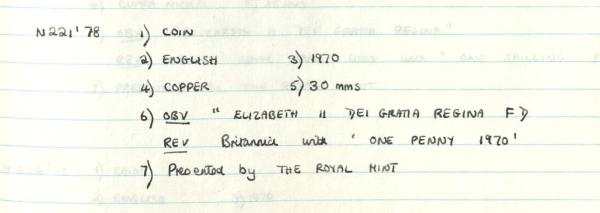 N221'78 1) COIN
2) ENGLISH 3) 1970
4) COPPER 5) 30 mms
6) OBV " ELIZABETH II DEI GRATIA REGINA F D
REV Britannia with ' ONE PENNY 1970'
7) Presented by THE ROYAL MINT